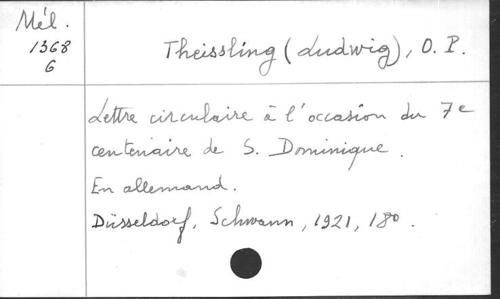 Mél.
1368
6
Theissling (Ludwig), O. P.
Lettre circulaire à l'occasion du 7e
centenaire de S. Dominique.
En allemand.
Düsseldorf, Schwann, 1921, 18°.